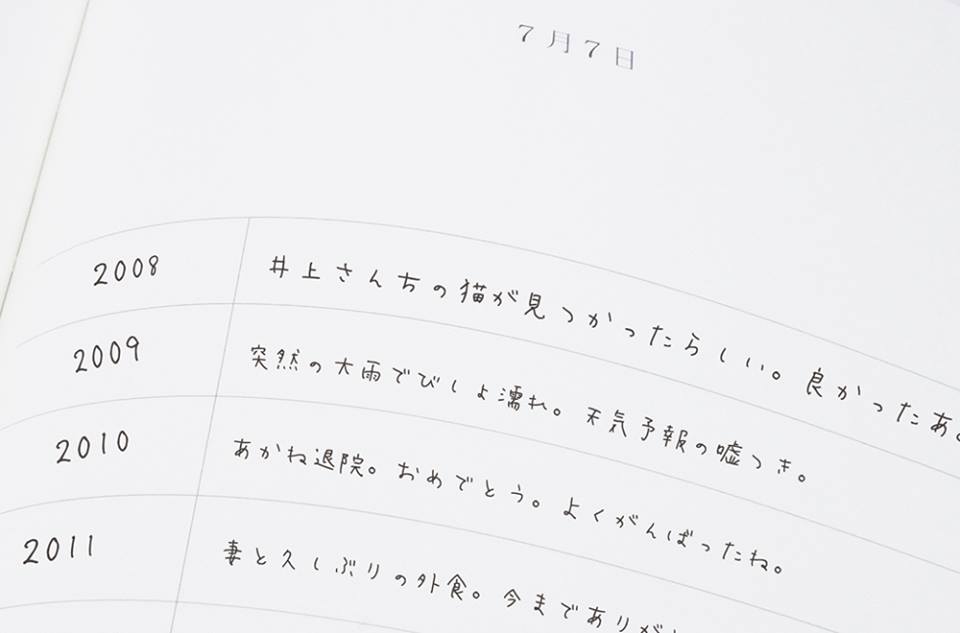 7月7日
2008 井上さんちの猫が見つかったらしい。良かったあ。
2009 突然の大雨でびしょ濡れ。天気予報の嘘つき。
2010 あかね退院。おめでとう。よくがんばったね。
2011 妻と久しぶりの外食。今までありが